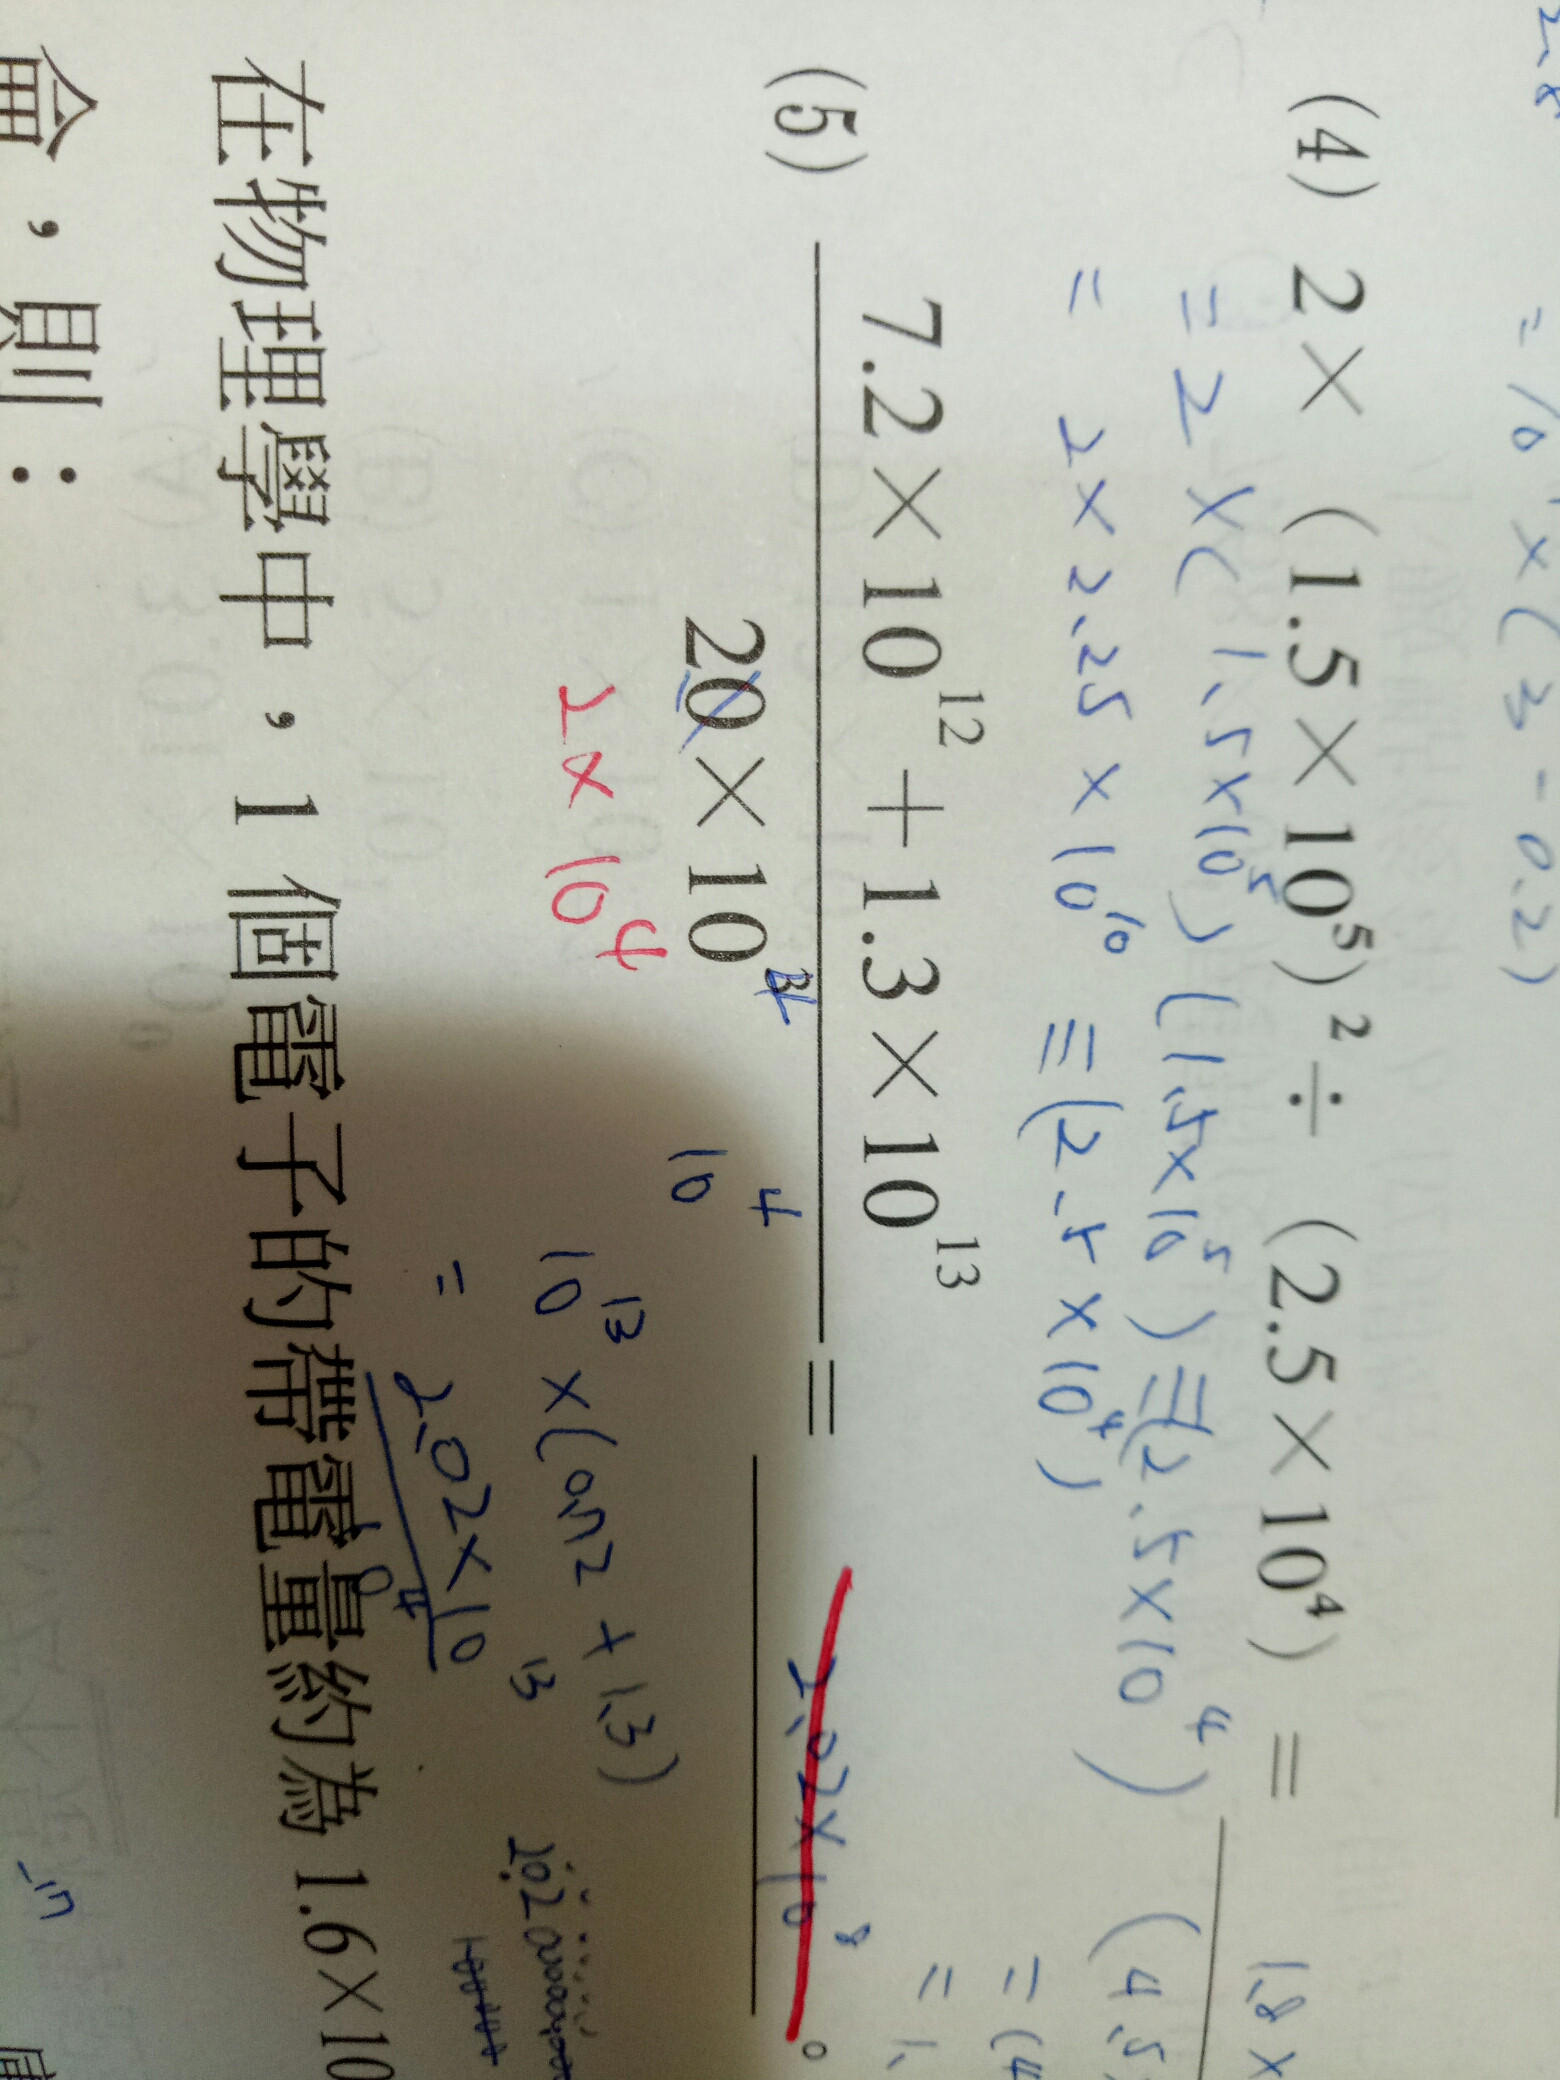 2.8
= 10 × ( 3 - 0.2 )
(4) 2 × (1.5 × 10⁵)² ÷ (2.5 × 10⁴) =
1.8 ×
= 2 × ( 1.5×10⁵ ) ( 1.5×10⁵ ) ÷ ( 2.5×10⁴ )
( 4.5
= 2 × 2.25 × 10¹⁰ ÷ ( 2.5 × 10⁴ )
= ( 4
= 1.
(5) 7.2 × 10¹² + 1.3 × 10¹³
20 × 10³
= 2.02×10⁸ 。
4
2 × 10⁴
10⁴
10¹³ × ( 0.72 + 1.3 )
= 2.02×10¹³
10⁴
在物理學中，1 個電子的帶電量約為 1.6×10
侖，則：